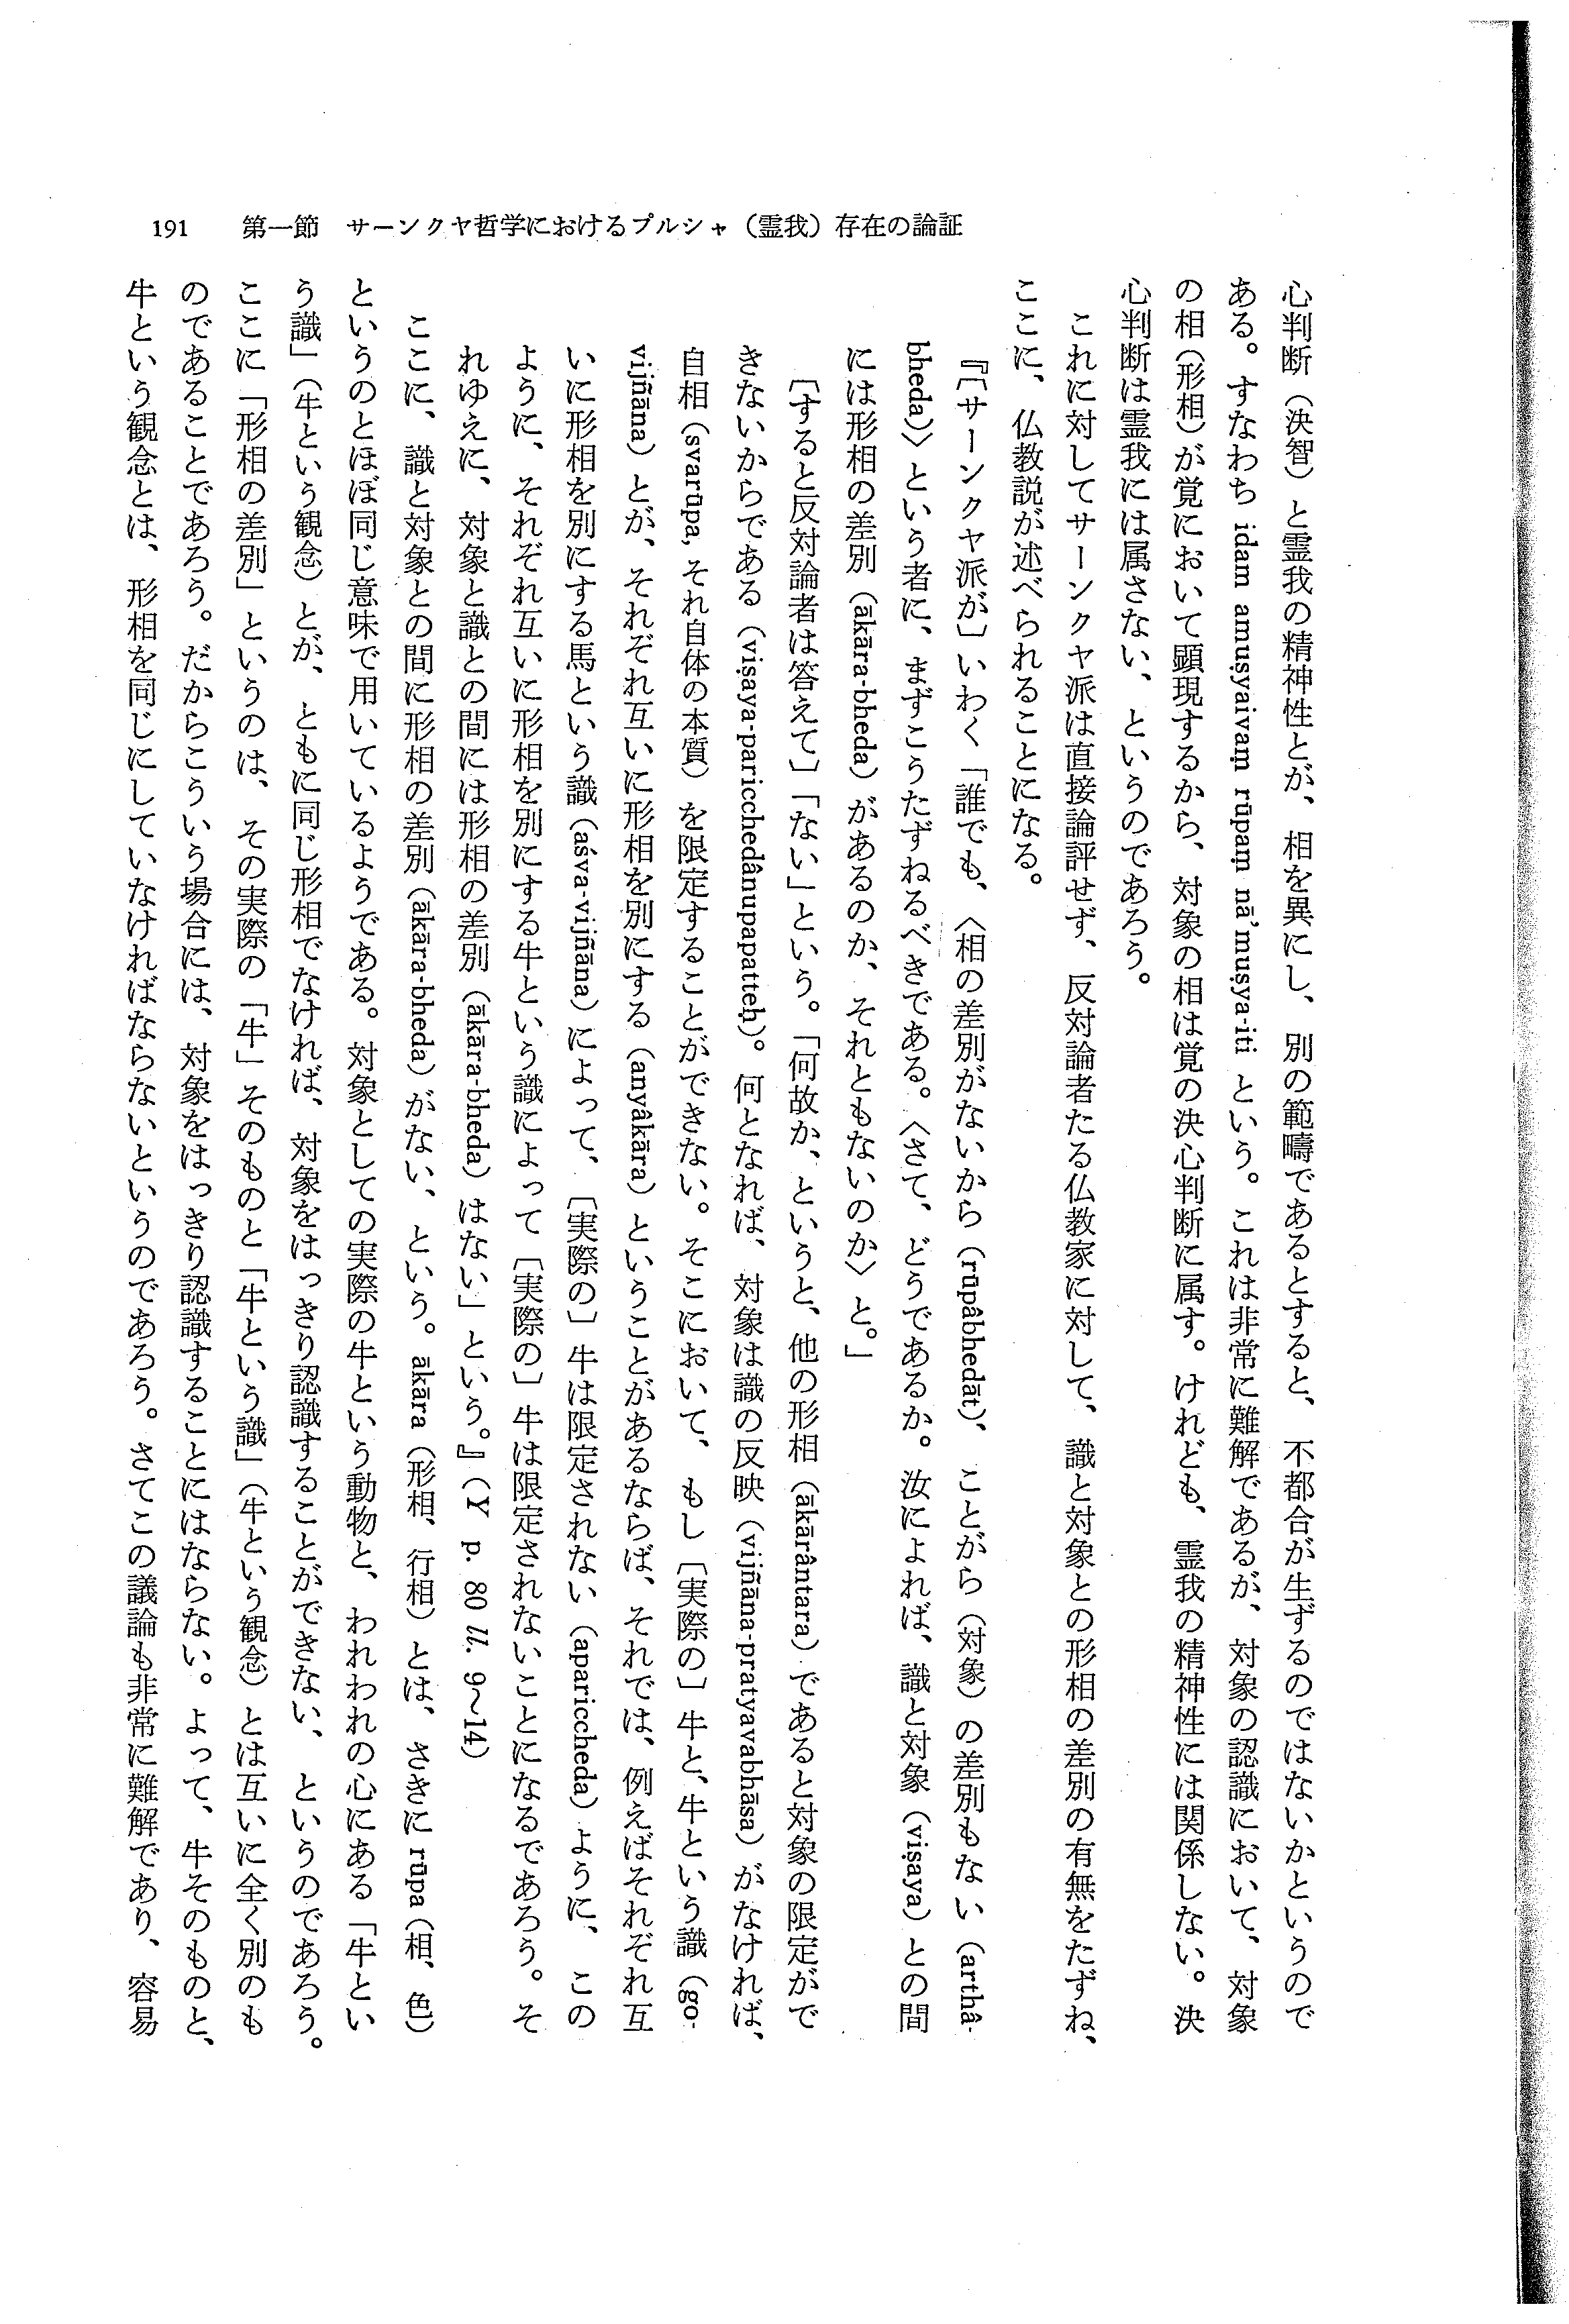 191　第一節　サーンクヤ哲学におけるプルシャ（霊我）存在の論証
心判断（決智）と霊我の精神性とが、相を異にし、別の範疇であるとすると、不都合が生ずるのではないかというので
ある。すなわち idam amuṣyaivaṃ rūpaṃ nā'muṣya-iti という。これは非常に難解であるが、対象の認識において、対象
の相（形相）が覚において顕現するから、対象の相は覚の決心判断に属す。けれども、霊我の精神性には関係しない。決
心判断は霊我には属さない、というのであろう。
これに対してサーンクヤ派は直接論評せず、反対論者たる仏教家に対して、識と対象との形相の差別の有無をたずね、
ここに、仏教説が述べられることになる。
『〔サーンクヤ派が〕いわく「誰でも、〈相の差別がないから（rūpâbhedāt）、ことがら（対象）の差別もない（arthâ-
bheda）〉という者に、まずこうたずねるべきである。〈さて、どうであるか。汝によれば、識と対象（viṣaya）との間
には形相の差別（ākāra-bheda）があるのか、それともないのか〉と。」
〔すると反対論者は答えて〕「ない」という。「何故か、というと、他の形相（ākārântara）であると対象の限定がで
きないからである（viṣaya-paricchedânupapatteḥ）。何となれば、対象は識の反映（vijñāna-pratyavabhāsa）がなければ、
自相（svarūpa, それ自体の本質）を限定することができない。そこにおいて、もし〔実際の〕牛と、牛という識（go-
vijñāna）とが、それぞれ互いに形相を別にする（anyâkāra）ということがあるならば、それでは、例えばそれぞれ互
いに形相を別にする馬という識（aśva-vijñāna）によって、〔実際の〕牛は限定されない（apariccheda）ように、この
ように、それぞれ互いに形相を別にする牛という識によって〔実際の〕牛は限定されないことになるであろう。そ
れゆえに、対象と識との間には形相の差別（ākāra-bheda）はない」という。』（Y p. 80 ll. 9〜14）
ここに、識と対象との間に形相の差別（ākāra-bheda）がない、という。ākāra（形相、行相）とは、さきに rūpa（相、色）
というのとほぼ同じ意味で用いているようである。対象としての実際の牛という動物と、われわれの心にある「牛とい
う識」（牛という観念）とが、ともに同じ形相でなければ、対象をはっきり認識することができない、というのであろう。
ここに「形相の差別」というのは、その実際の「牛」そのものと「牛という識」（牛という観念）とは互いに全く別のも
のであることであろう。だからこういう場合には、対象をはっきり認識することにはならない。よって、牛そのものと、
牛という観念とは、形相を同じにしていなければならないというのであろう。さてこの議論も非常に難解であり、容易